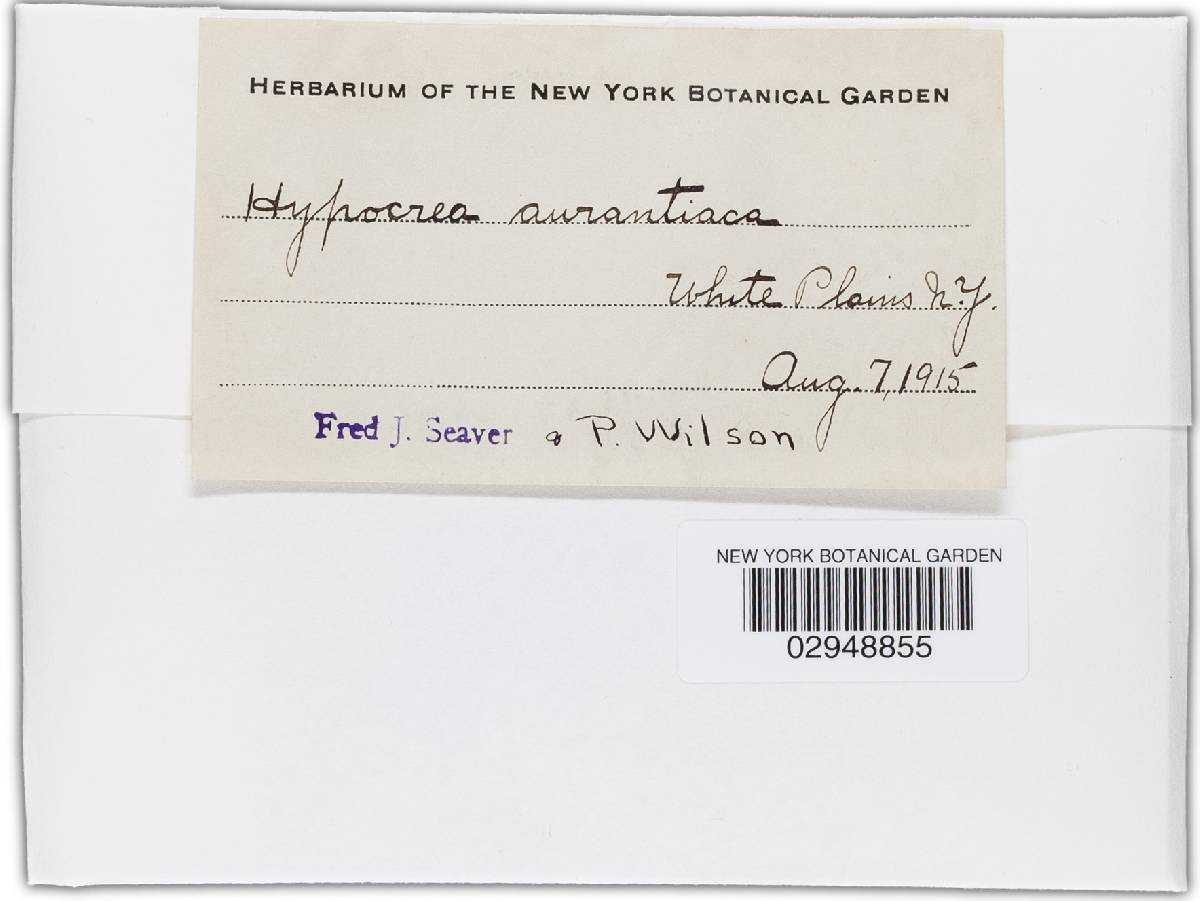 HERBARIUM OF THE NEW YORK BOTANICAL GARDEN
Hypocrea aurantiaca
White Plains N.Y.
Aug. 7, 1915
Fred J. Seaver & P. Wilson
NEW YORK BOTANICAL GARDEN
02948855